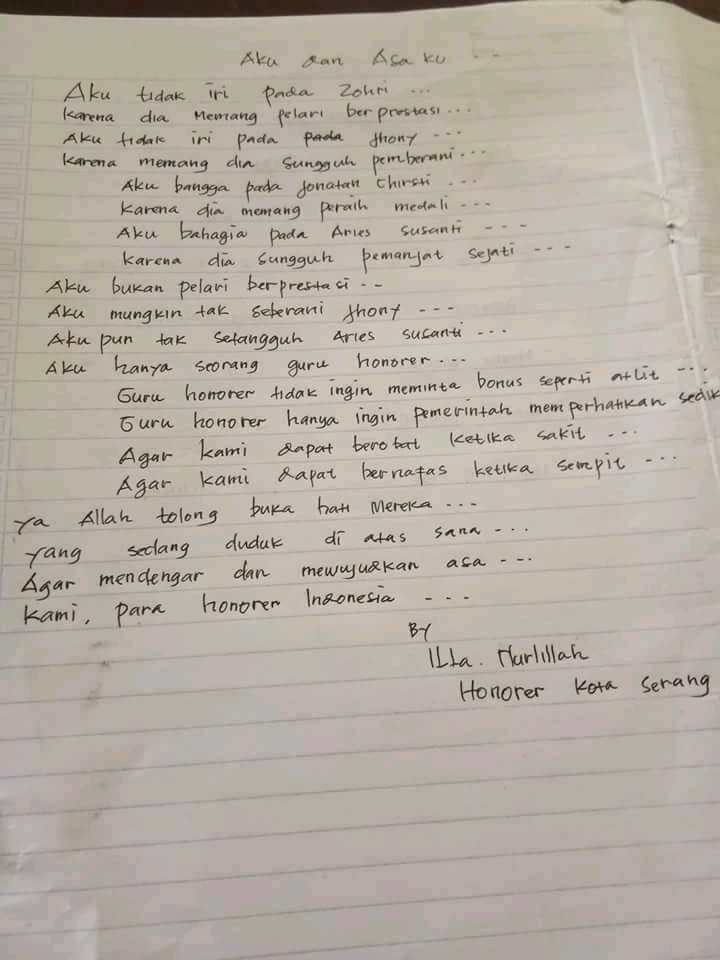 Aku dan Asa ku - -
Aku tidak iri pada Zohri ...
Karena dia Memang pelari berprestasi ...
Aku tidak iri pada pada Jhony - - -
Karena memang dia sungguh pemberani ...
Aku bangga pada Jonatan Chirsti - - -
Karena dia memang peraih medali - - -
Aku bahagia pada Aries Susanti - - -
Karena dia sungguh pemanjat sejati - - -
Aku bukan pelari berprestasi - -
Aku mungkin tak seberani Jhony - - -
Aku pun tak setangguh Aries Susanti ...
Aku hanya seorang guru honorer ...
Guru honorer tidak ingin meminta bonus seperti atlit - - -
Guru honorer hanya ingin pemerintah memperhatikan sedik
Agar kami dapat berobat ketika sakit - - -
Agar kami dapat bernafas ketika sempit - - -
Ya Allah tolong buka hati Mereka ...
Yang sedang duduk di atas sana - - -
Agar mendengar dan mewujudkan asa - - -
Kami, para honorer Indonesia - - -
BY
Nurlillah
Honorer Kota Serang